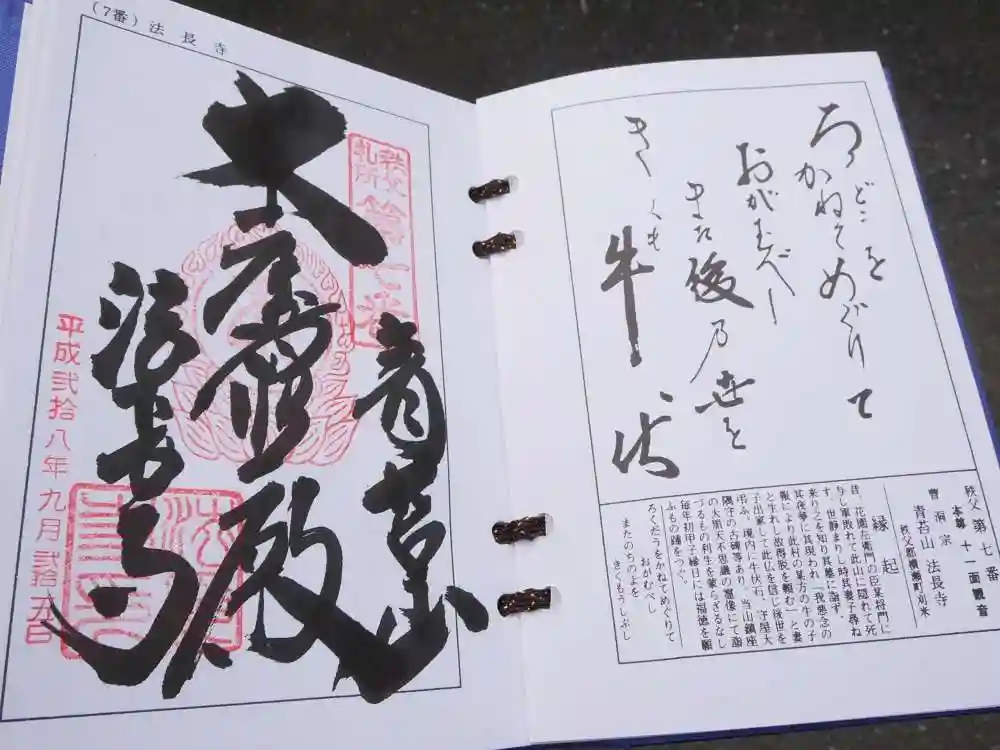 (7番) 法長寺
秩父
札所
第七番
青苔山
大慈殿
法長寺
平成弐拾八年九月弐拾五日
ろくどうを
かねてめぐりて
おがむべし
また後乃世を
きくも
牛伏
秩父第七番
本尊 十一面観音
曹洞宗
青苔山 法長寺
秩父郡横瀬町刈米
縁起
昔、花園左衛門の臣某将門に
らし軍敗れて此山に隠れて死
す。世静まりし時其妻子尋ね
来りを知り其墓に詣ず。
其夜夢に其現われ「我悪念の
報により此村の某方の牛の子
と生れし故得脱を願む」と妻
子出家して此仏を信じ後世を
弔ふ。境内に牛伏石、守屋大
隅守の古碑等あり。当山鎮座
の大黒天不思議の霊像にて詣
づるもの利生を蒙らざるなし
毎年初甲子縁日には福徳を願
ふもの踵をつぐ。
ろくだうをかねてめぐりて
おがむべし
またのちのよを
きくもうしぶし